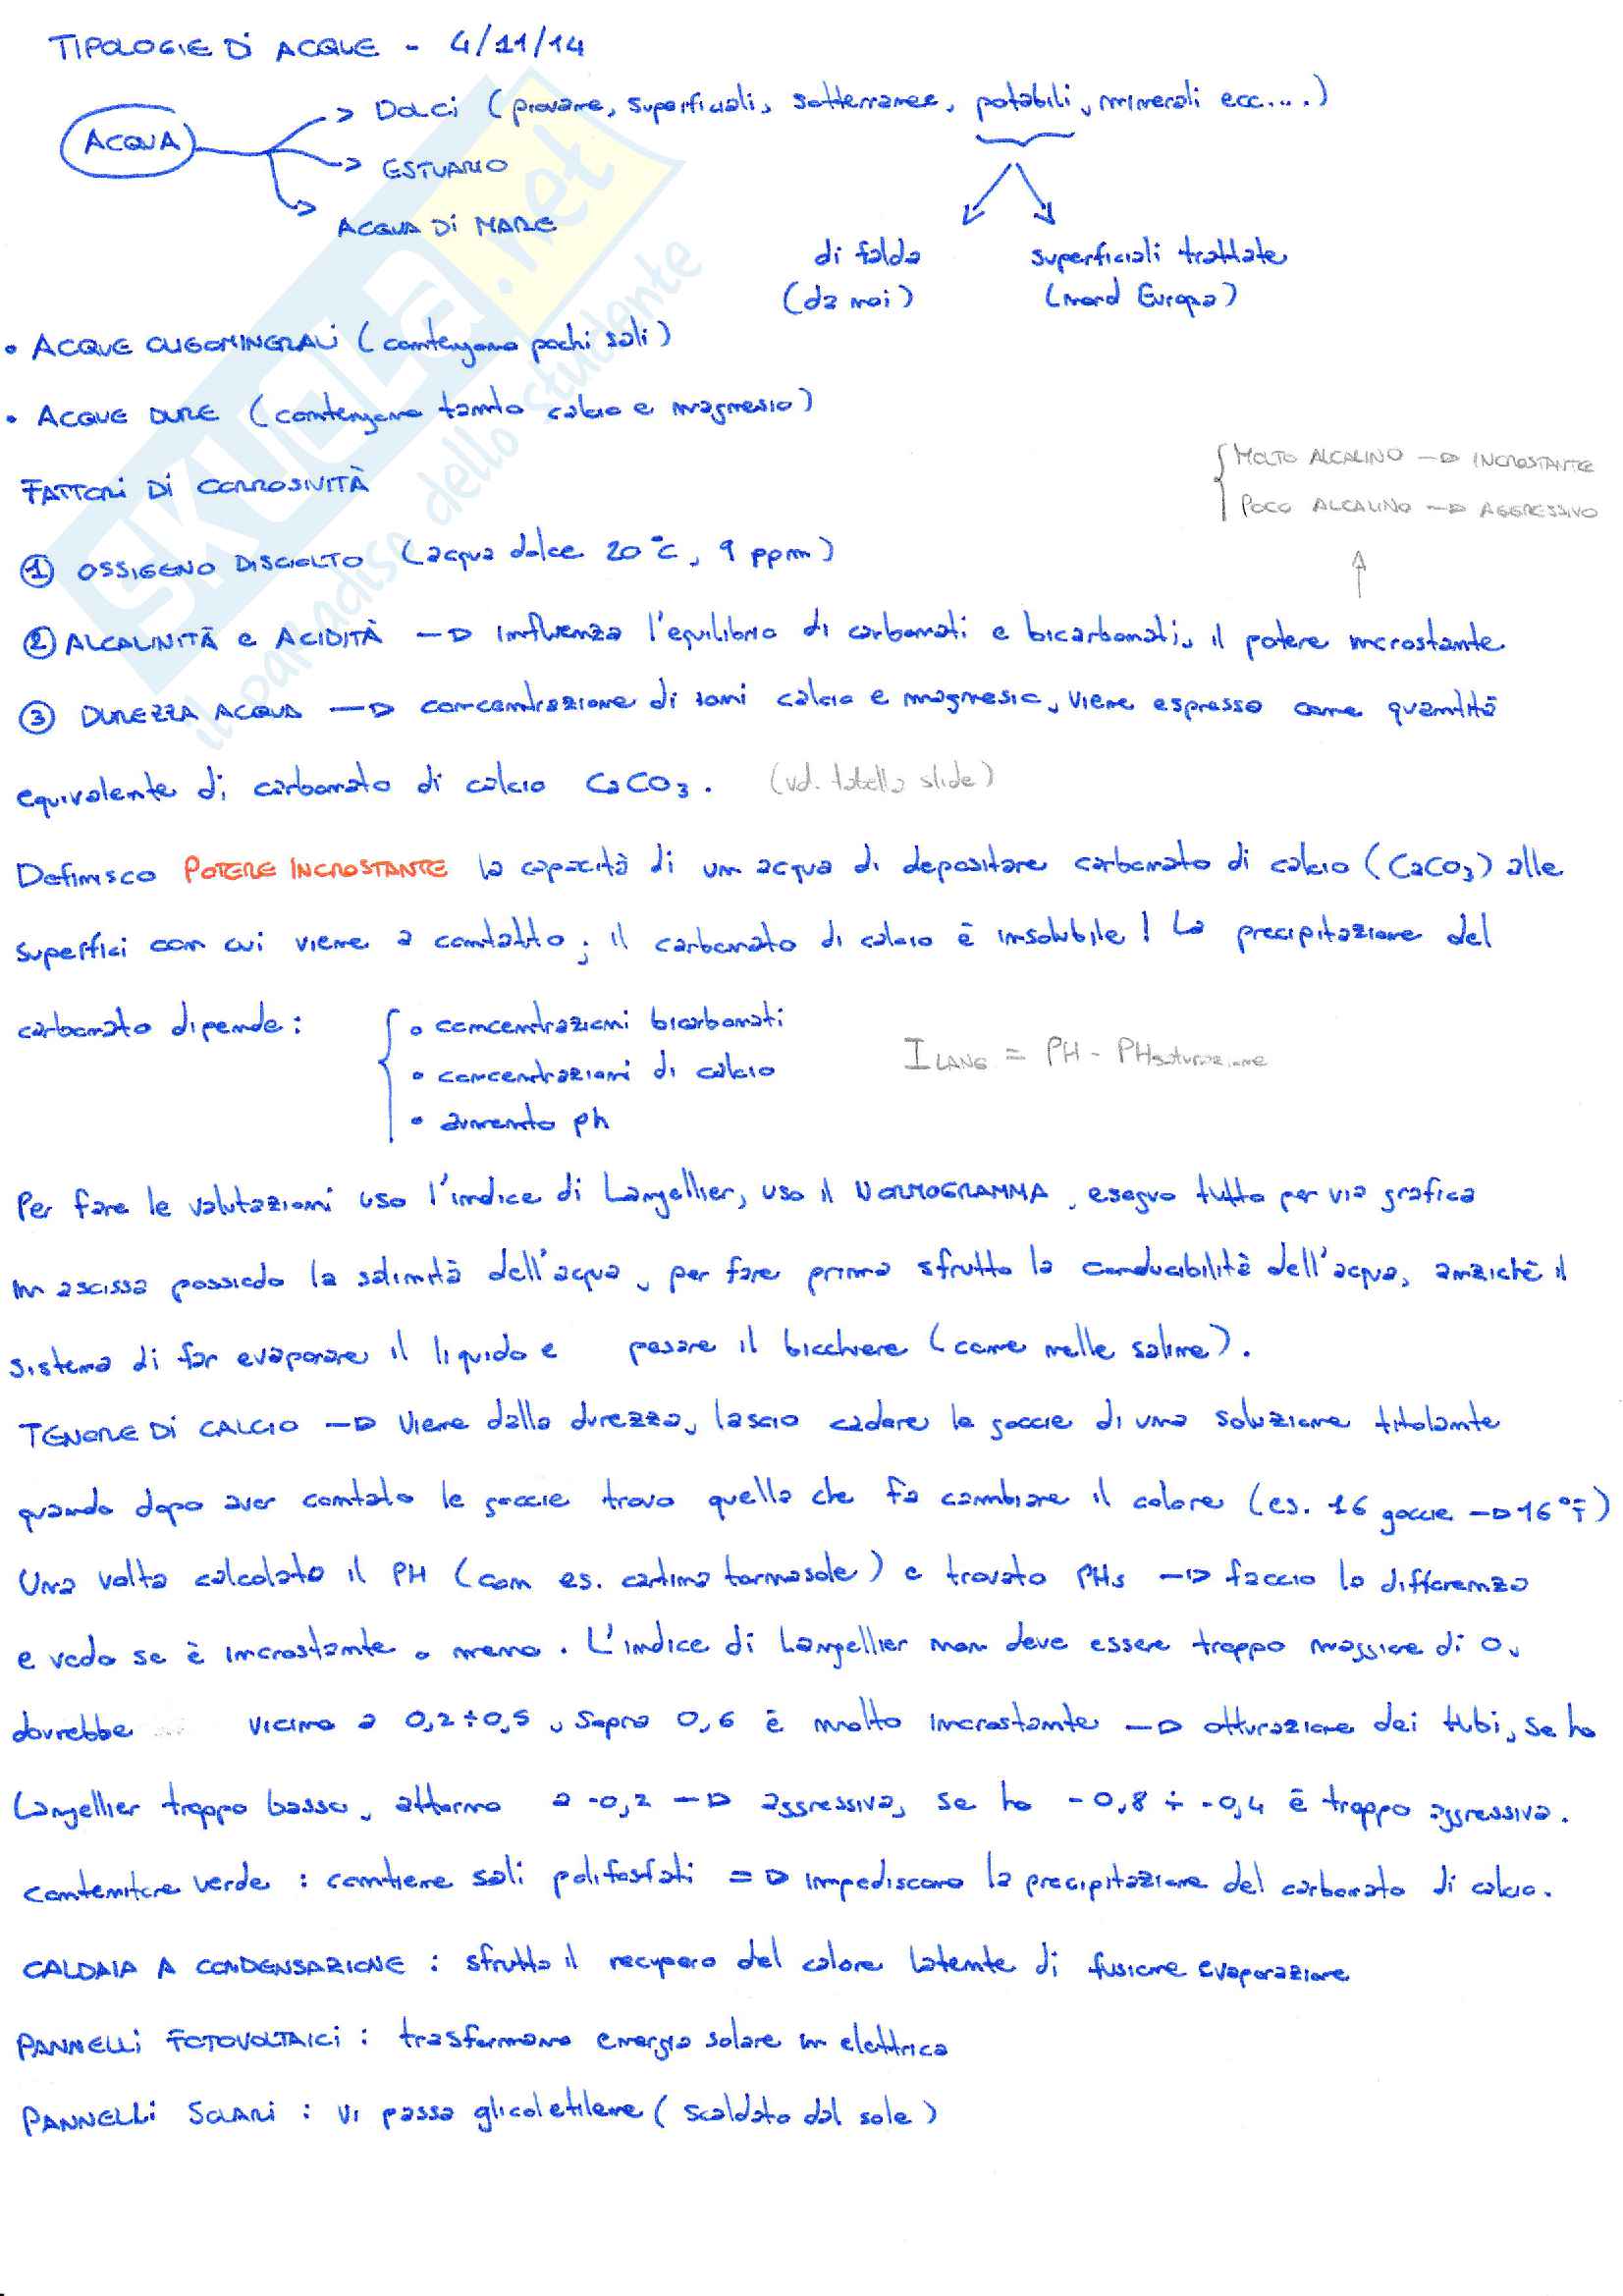 TIPOLOGIE DI ACQUE - 4/11/14
ACQUA
→ DOLCI (piovane, superficiali, sotterranee, potabili, minerali ecc....)
→ ESTUARIO
→ ACQUA DI MARE
di falda superficiali trattate
(da noi) (nord Europa)
SKUOLA.net
il paradiso dello studente
• ACQUE OLIGOMINERALI (contengono pochi sali)
• ACQUE DURE (contengono tanto calcio e magnesio)
MOLTO ALCALINO → INCROSTANTE
POCO ALCALINO → AGGRESSIVO
FATTORI DI CORROSIVITÀ
① OSSIGENO DISCIOLTO (acqua dolce 20°C, 9 ppm)
② ALCALINITÀ e ACIDITÀ → influenza l'equilibrio di carbonati e bicarbonati, il potere incrostante
③ DUREZZA ACQUA → concentrazione di ioni calcio e magnesio, viene espresso come quantità
equivalente di carbonato di calcio CaCO3. (vd. tabella slide)
Definisco POTERE INCROSTANTE la capacità di un acqua di depositare carbonato di calcio (CaCO3) alle
superfici con cui viene a contatto; il carbonato di calcio è insolubile! La precipitazione del
carbonato dipende:
• concentrazioni bicarbonati
• concentrazioni di calcio
• aumento ph
I LANG = PH - PHsaturazione
Per fare le valutazioni uso l'indice di Langellier, uso il NORMOGRAMMA, eseguo tutto per via grafica
In ascissa possiedo la salinità dell'acqua, per fare prima sfrutto la conducibilità dell'acqua, anzichè il
sistema di far evaporare il liquido e pesare il bicchiere (come nelle saline).
TENORE DI CALCIO → Viene dalla durezza, lascio cadere le goccie di una soluzione titolante
quando dopo aver contato le goccie trovo quella che fa cambiare il colore (es. 16 goccie → 16°F)
Una volta calcolato il PH (con es. cartina tornasole) e trovato PHs → faccio la differenza
e vedo se è incrostante o meno. L'indice di Langellier non deve essere troppo maggiore di 0,
dovrebbe vicino a 0,2÷0,5, Sopra 0,6 è molto incrostante → otturazione dei tubi, se ho
Langellier troppo basso, attorno a -0,2 → aggressiva, se ho -0,8 ÷ -0,4 è troppo aggressiva.
Contenitore verde : contiene sali polifosfati => impediscono la precipitazione del carbonato di calcio.
CALDAIA A CONDENSAZIONE : sfrutto il recupero del calore latente di fusione evaporazione
PANNELLI FOTOVOLTAICI : trasformano energia solare in elettrica
PANNELLI SOLARI : vi passa glicol etilene (scaldato dal sole)